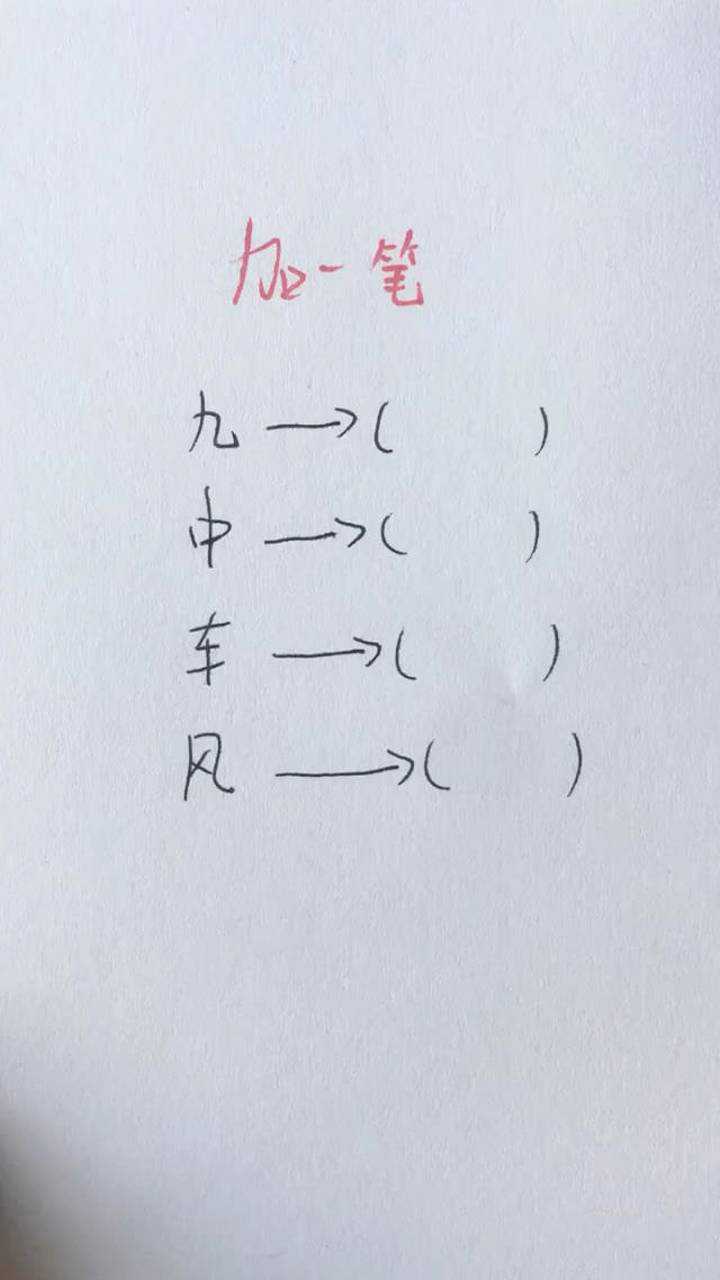 加一笔
九→(　　)
中→(　　)
车→(　　)
风→(　　)